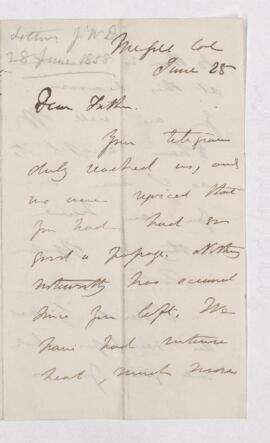 28 June 1858
June 25
Dear Father.
Your telegram
duly reached us, and
we were rejoiced that
you had had so
good a passage. Nothing
noteworthy has occurred
since you left. We
have had intense
heat, much more